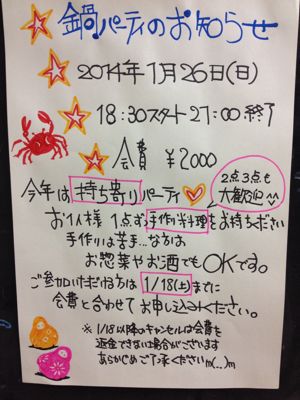 鍋パーティのお知らせ
2014年1月26日(日)
18:30スタート 21:00終了
会費 ¥2000
2点3点も
大歓迎
今年は持ち寄りパーティ
お1人様 1点ずつ手作り料理をお持ちください
手作りは苦手…な方は
お惣菜やお酒でもOKです。
ご参加いただける方は 1/18(土)までに
会費と合わせてお申し込みください。
※1/18以降のキャンセルは会費を
返金できない場合がございます
あらかじめご了承くださいm(...)m